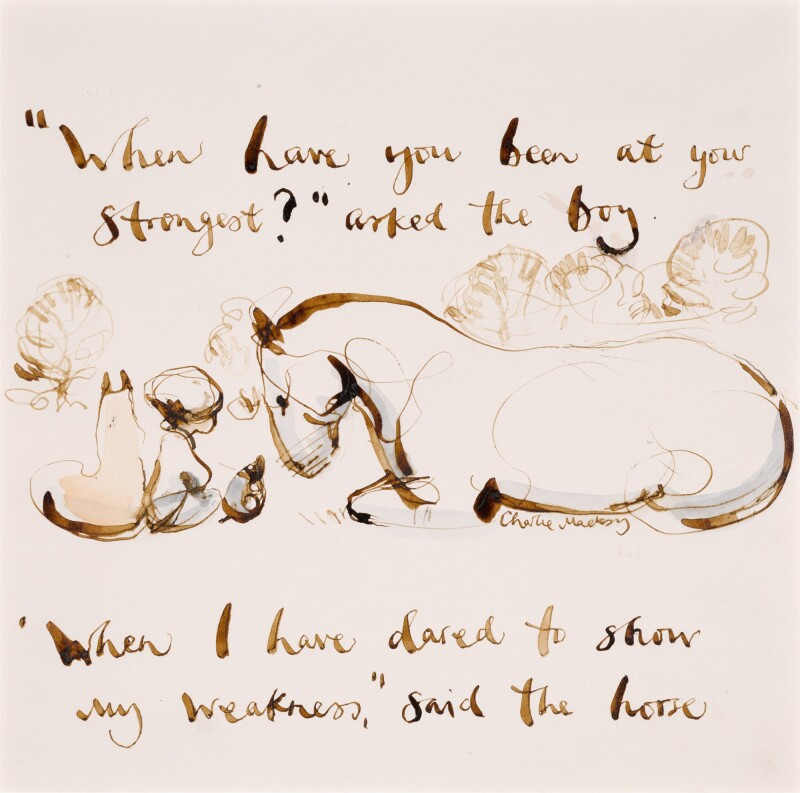 "When have you been at your
strongest?" asked the boy.
Charlie Mackesy
'When I have dared to show
my weakness," said the horse